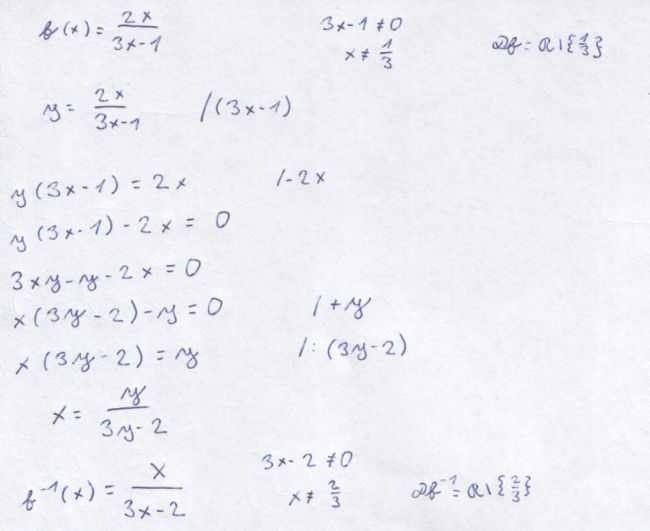 f(x) = 2x / (3x-1)    3x-1 ≠ 0    Df = R \ {1/3}
x ≠ 1/3
y = 2x / (3x-1)    /(3x-1)
y(3x-1) = 2x    /-2x
y(3x-1) - 2x = 0
3xy - y - 2x = 0
x(3y-2) - y = 0    / +y
x(3y-2) = y    /: (3y-2)
x = y / (3y-2)
f⁻¹(x) = x / (3x-2)    3x-2 ≠ 0    Df⁻¹ = R \ {2/3}
x ≠ 2/3